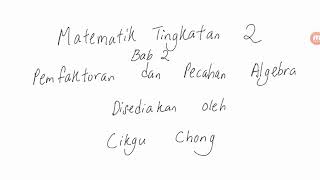 Matematik Tingkatan 2
Bab 2
Pemfaktoran dan Pecahan Algebra
Disediakan oleh
Cikgu Chong